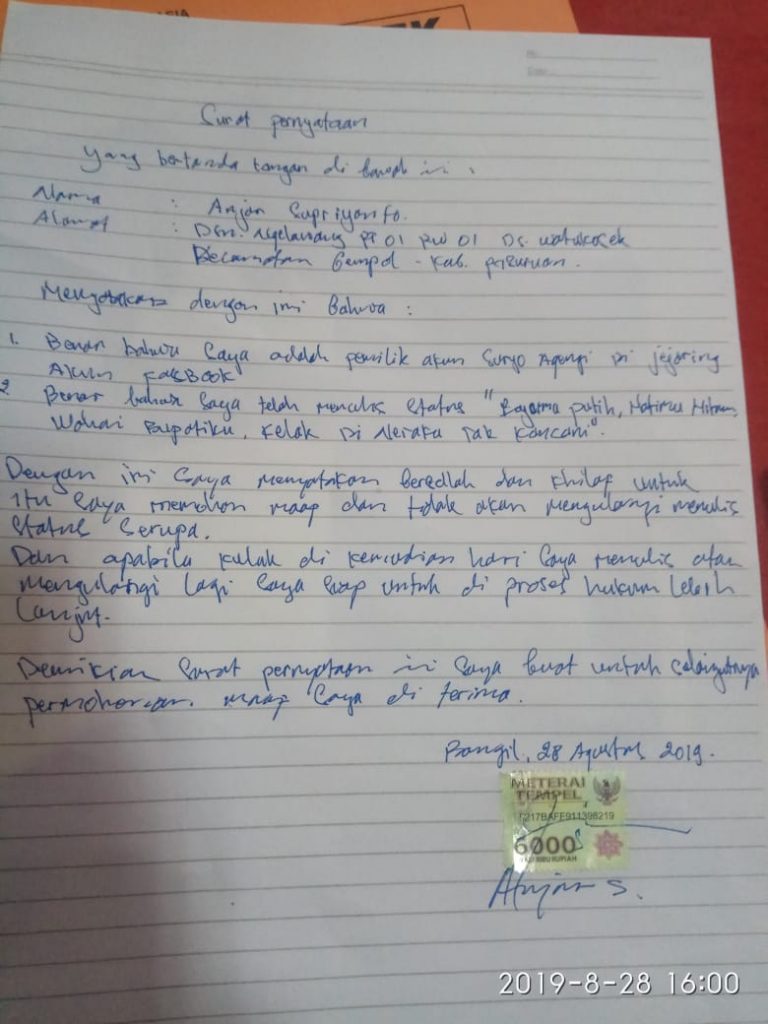 Surat pernyataan
Yang bertanda tangan di bawah ini :
Nama : Anjar Supriyanto.
Alamat : Dsn. Ngelawang RT 01 RW 01 Ds. Watukosek
Kecamatan Gempol - Kab. Pasuruan.
Menyatakan dengan ini Bahwa :
1. Benar bahwa Saya adalah pemilik akun Suryo Agengi di jejaring
Akun FaceBook
2 Benar bahwa Saya telah menulis status "Bajumu putih, Hatimu Hitam
Wahai Bupatiku, Kelak Di Neraka Tak Kancani".
Dengan ini Saya menyatakan bersalah dan khilap untuk
itu Saya memohon maap dan tidak akan mengulangi menulis
Status Serupa.
Dan apabila kelak di kemudian hari Saya menulis atau
mengulangi lagi Saya siap untuk di proses hukum lebih
lanjut.
Demikian Surat pernyataan ini Saya buat untuk selanjutnya
permohonan maap Saya di terima.
Bangil, 28 Agustus 2019.
METERAI
TEMPEL
6000
ENAM RIBU RUPIAH
Anjar S.
2019-8-28 16:00